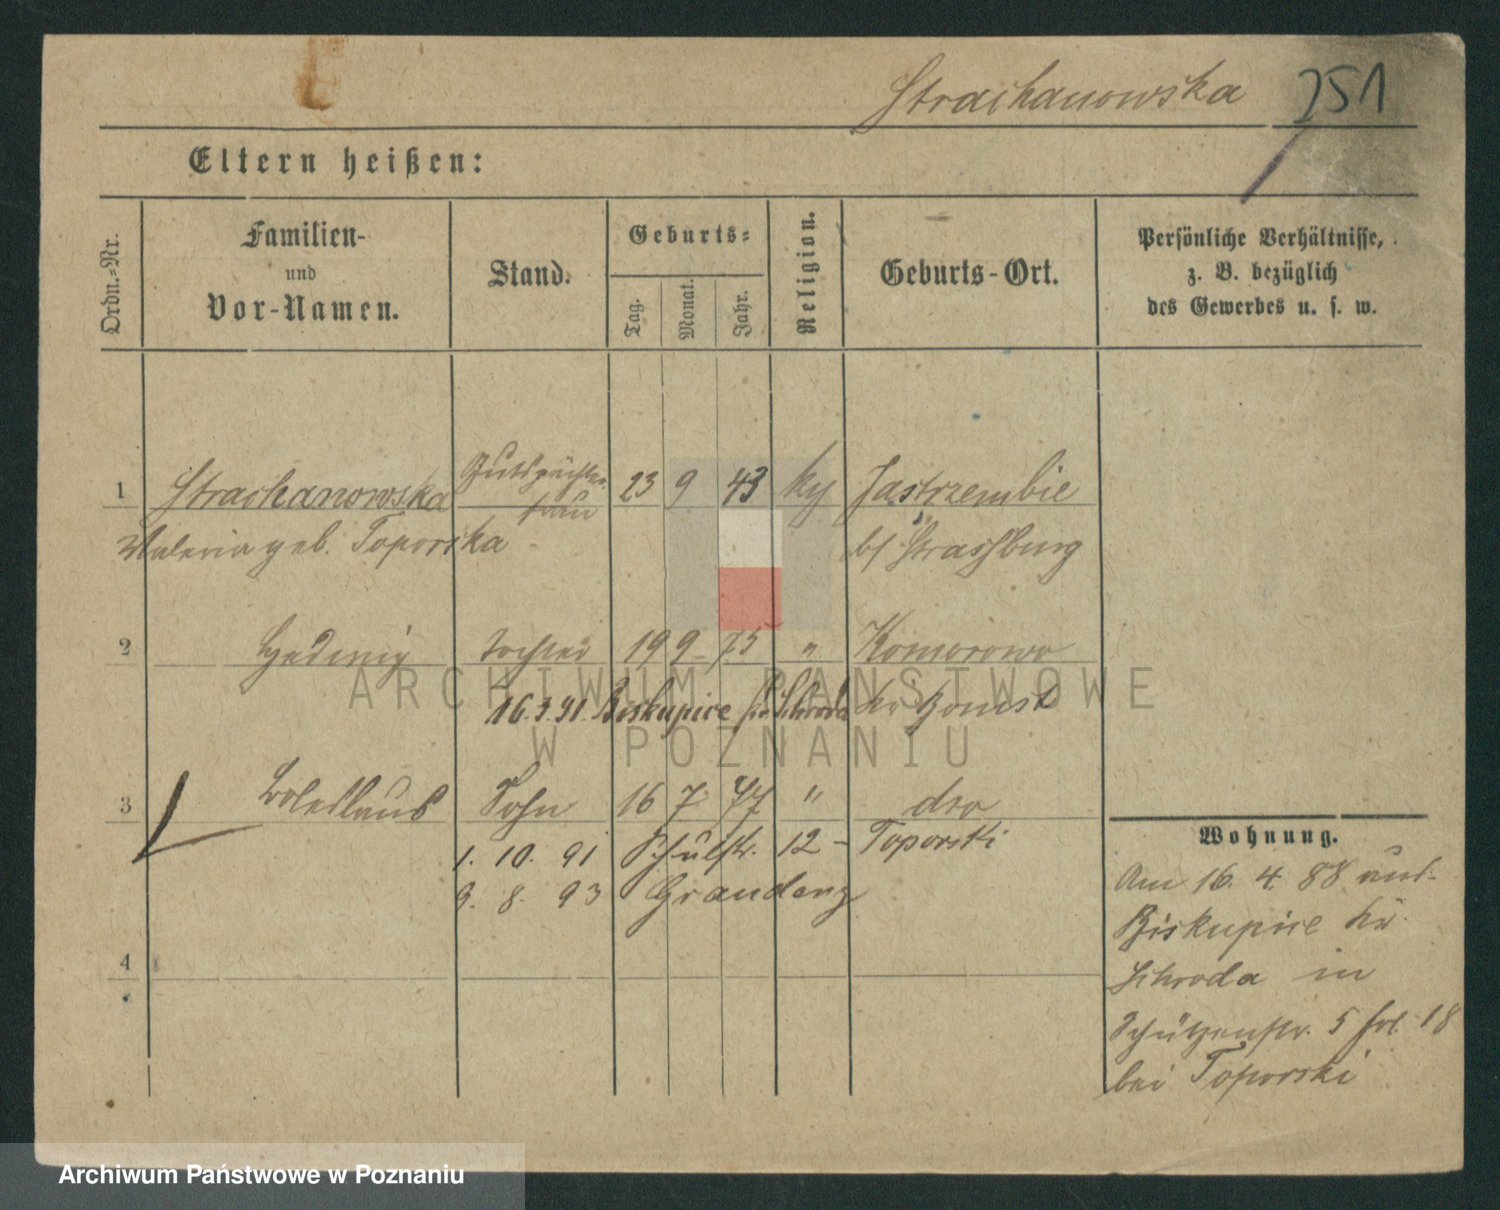 Strachanowska 251
Eltern heißen:
Ordn.-Nr.
Familien-
und
Vor-Namen.
Stand.
Geburts-
Tag.
Monat.
Jahr.
Religion.
Geburts-Ort.
Persönliche Verhältnisse,
z. B. bezüglich
des Gewerbes u. s. w.
1 Strachanowska Gutspächter 23 9 43 ky Jastrzembie
frau
Valeria geb. Toporska b/ Strassburg
2 Hedwig Tochter 19 9 75 " Komorowo
16.3.91. Biskupice Kr Schroda Kr Bomst
3 Boleslaus Sohn 16 7 77 " dto
1. 10. 91 Schulstr. 12 - Toporski
9. 8. 93 Graudenz
4
Wohnung.
Am 16. 4 88 aus
Biskupice Kr.
Schroda in
Schützenstr. 5 18
bei Toporski
ARCHIWUM PAŃSTWOWE
W POZNANIU
Archiwum Państwowe w Poznaniu